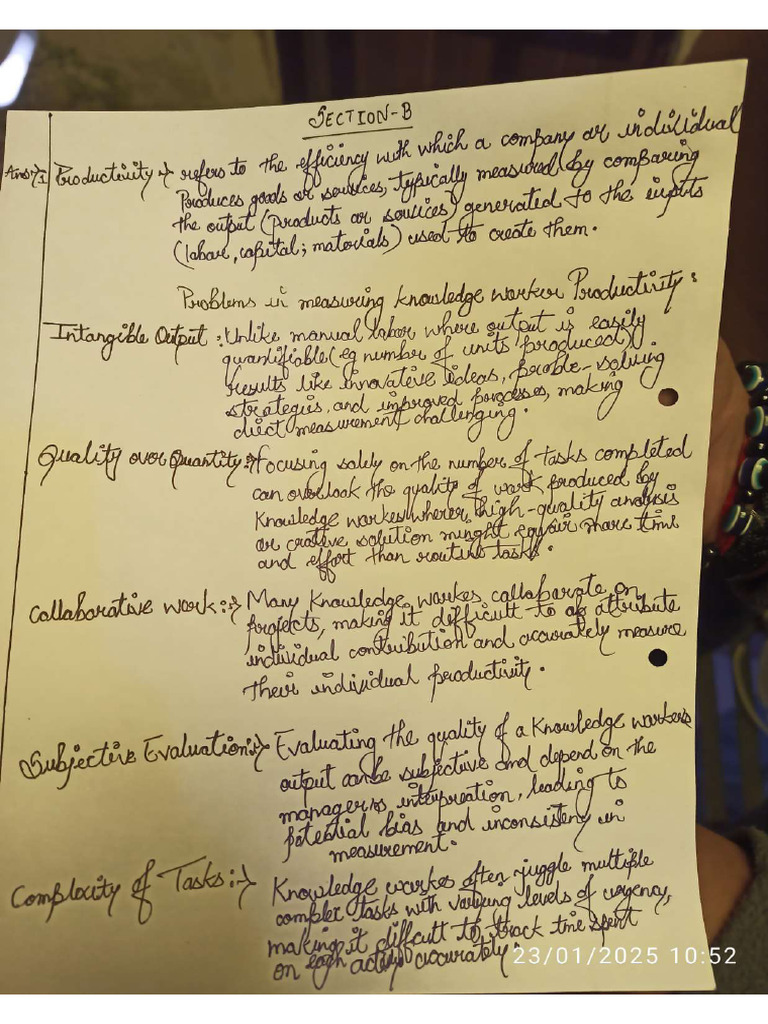 SECTION-B
Ans→1 Productivity → refers to the efficiency with which a company or individual
Produces goods or sources, typically measured by comparing
the output (products or sources) generated to the inputs
(labor, capital; materials) used to create them.
Problems in measuring knowledge worker Productivity:
Intangible Output: Unlike manual labor where output is easily
quantifiable (eg number of units produced)
results like innovative ideas, proble-solving
strategies, and improved processes, making
diect measurement challenging.
Quality over Quantity:→ Focusing solely on the number of tasks completed
can overlook the quality of work produced by
Knowledge workes where high-quality analysis
or crative solution minght more time
and effort than routine tasks.
Collaborative work:→ Many Knowledge workes collaborate on
projects, making it difficult to attribute
individual contribution and accurately measure
their individual productivity.
Subjective Evaluation:→ Evaluating the quality of a Knowledge workers
output can be subjective and depend on the
interpreation, leading to
potential bias and inconsistency in
measurement.
Complexity of Tasks:→ Knowledge workes often juggle multiple
complex tasks with varying levels of urgency,
making it difficult to track time spent
on each accurately.
23/01/2025 10:52